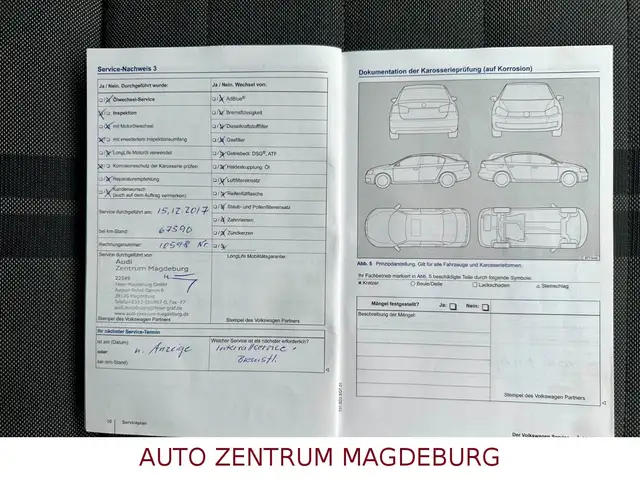 Service-Nachweis 3
Ja / Nein. Durchgeführt wurde:
Ölwechsel-Service
Inspektion
mit Motorölwechsel
mit erweitertem Inspektionsumfang
LongLife Motoröl verwendet
Korrosionsschutz der Karosserie prüfen
Reparaturempfehlung
Kundenwunsch
(auch auf dem Auftrag vermerken)
Service durchgeführt am: 15.12.2017
bei km-Stand: 67590
Rechnungsnummer: 10548
Service durchgeführt von
Audi
Zentrum Magdeburg
Stempel des Volkswagen Partners
Ja / Nein. Wechsel von:
AdBlue®
Bremsflüssigkeit
Dieselkraftstofffilter
Gasfilter
Getriebeöl: DSG®, ATF
Haldexkupplung: Öl
Luftfiltereinsatz
Reifenfüllflasche
Staub- und Pollenfiltereinsatz
Zahnriemen
Zündkerzen
LongLife Mobilitätsgarantie:
Stempel des Volkswagen Partners
Ihr nächster Service-Termin
ist am (Datum)
oder n. Anzeige
bei (km-Stand)
Welcher Service ist als nächster erforderlich?
Intervallservice +
Bremsfl.
10 Serviceplan
Dokumentation der Karosserieprüfung (auf Korrosion)
Abb. 5 Prinzipdarstellung. Gilt für alle Fahrzeuge und Karosserieformen.
Ihr Fachbetrieb markiert in Abb. 5 beschädigte Teile durch folgende Symbole:
Kratzer Beule/Delle Lackschaden Steinschlag
Mängel festgestellt? Ja: Nein:
Beschreibung der Mängel:
Stempel des Volkswagen Partners
AUTO ZENTRUM MAGDEBURG